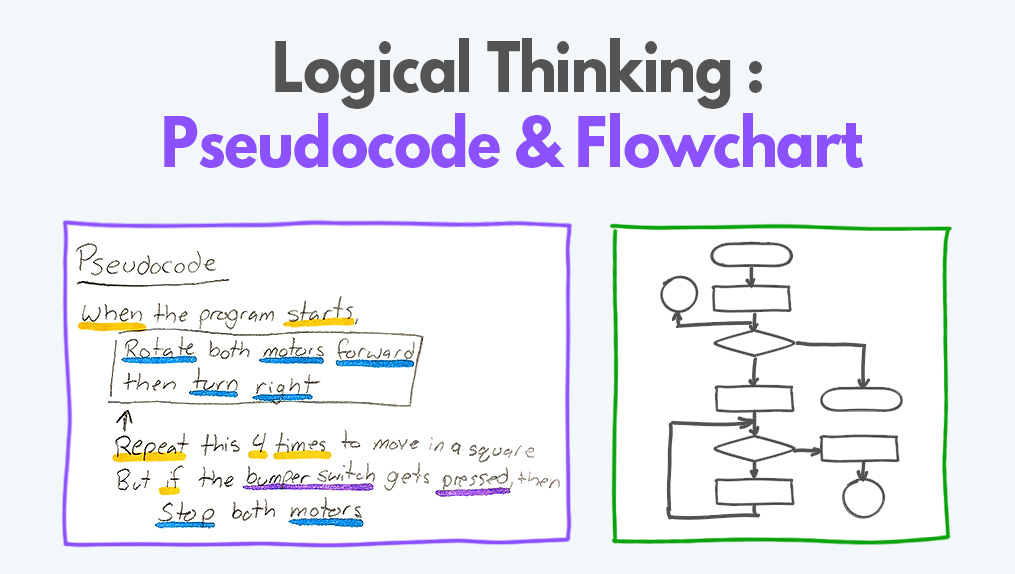 Logical Thinking :
Pseudocode & Flowchart
Pseudocode
When the program starts,
Rotate both motors forward
then turn right
Repeat this 4 times to move in a square
But if the bumper switch gets pressed, then
Stop both motors